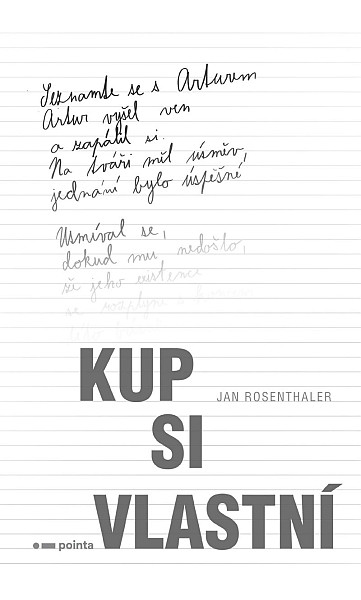 Seznamte se s Arturem
Artur vyšel ven
a zapálil si.
Na tváři měl úsměv,
jednání bylo úspěšné!
Usmíval se,
dokud mu nedošlo,
že jeho existence
se rozplyne s
KUP
JAN ROSENTHALER
SI
VLASTNÍ
pointa